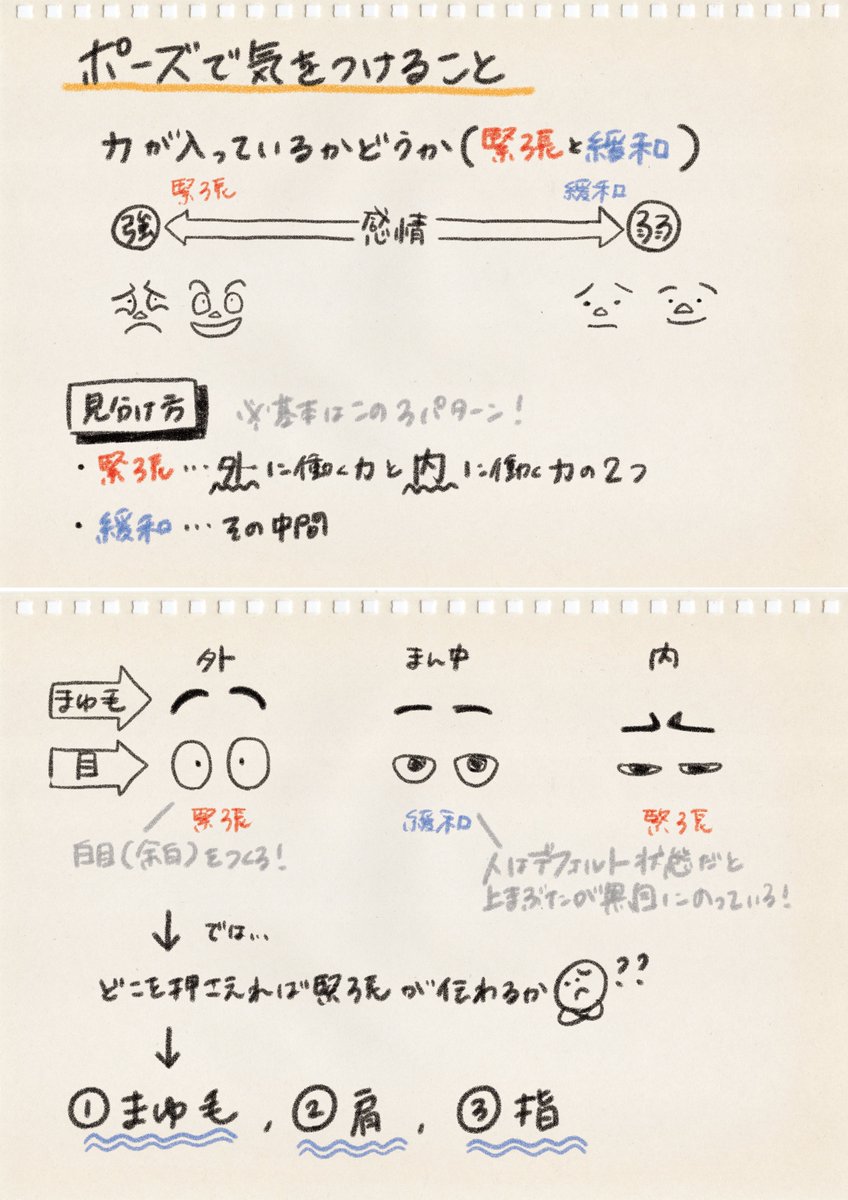 ポーズで気をつけること
力が入っているかどうか(緊張と緩和)
緊張 緩和
強 感情 弱
見分け方 ※基本はこの3パターン!
・緊張…外に働く力と内に働く力の2つ
・緩和…その中間
外 まん中 内
まゆ毛
目
緊張 緩和 緊張
白目(余白)をつくる!
人はデフォルト状態だと
上まぶたが黒目にのっている!
↓ では…
どこを押さえれば緊張が伝わるか??
↓
①まゆ毛, ②肩, ③指